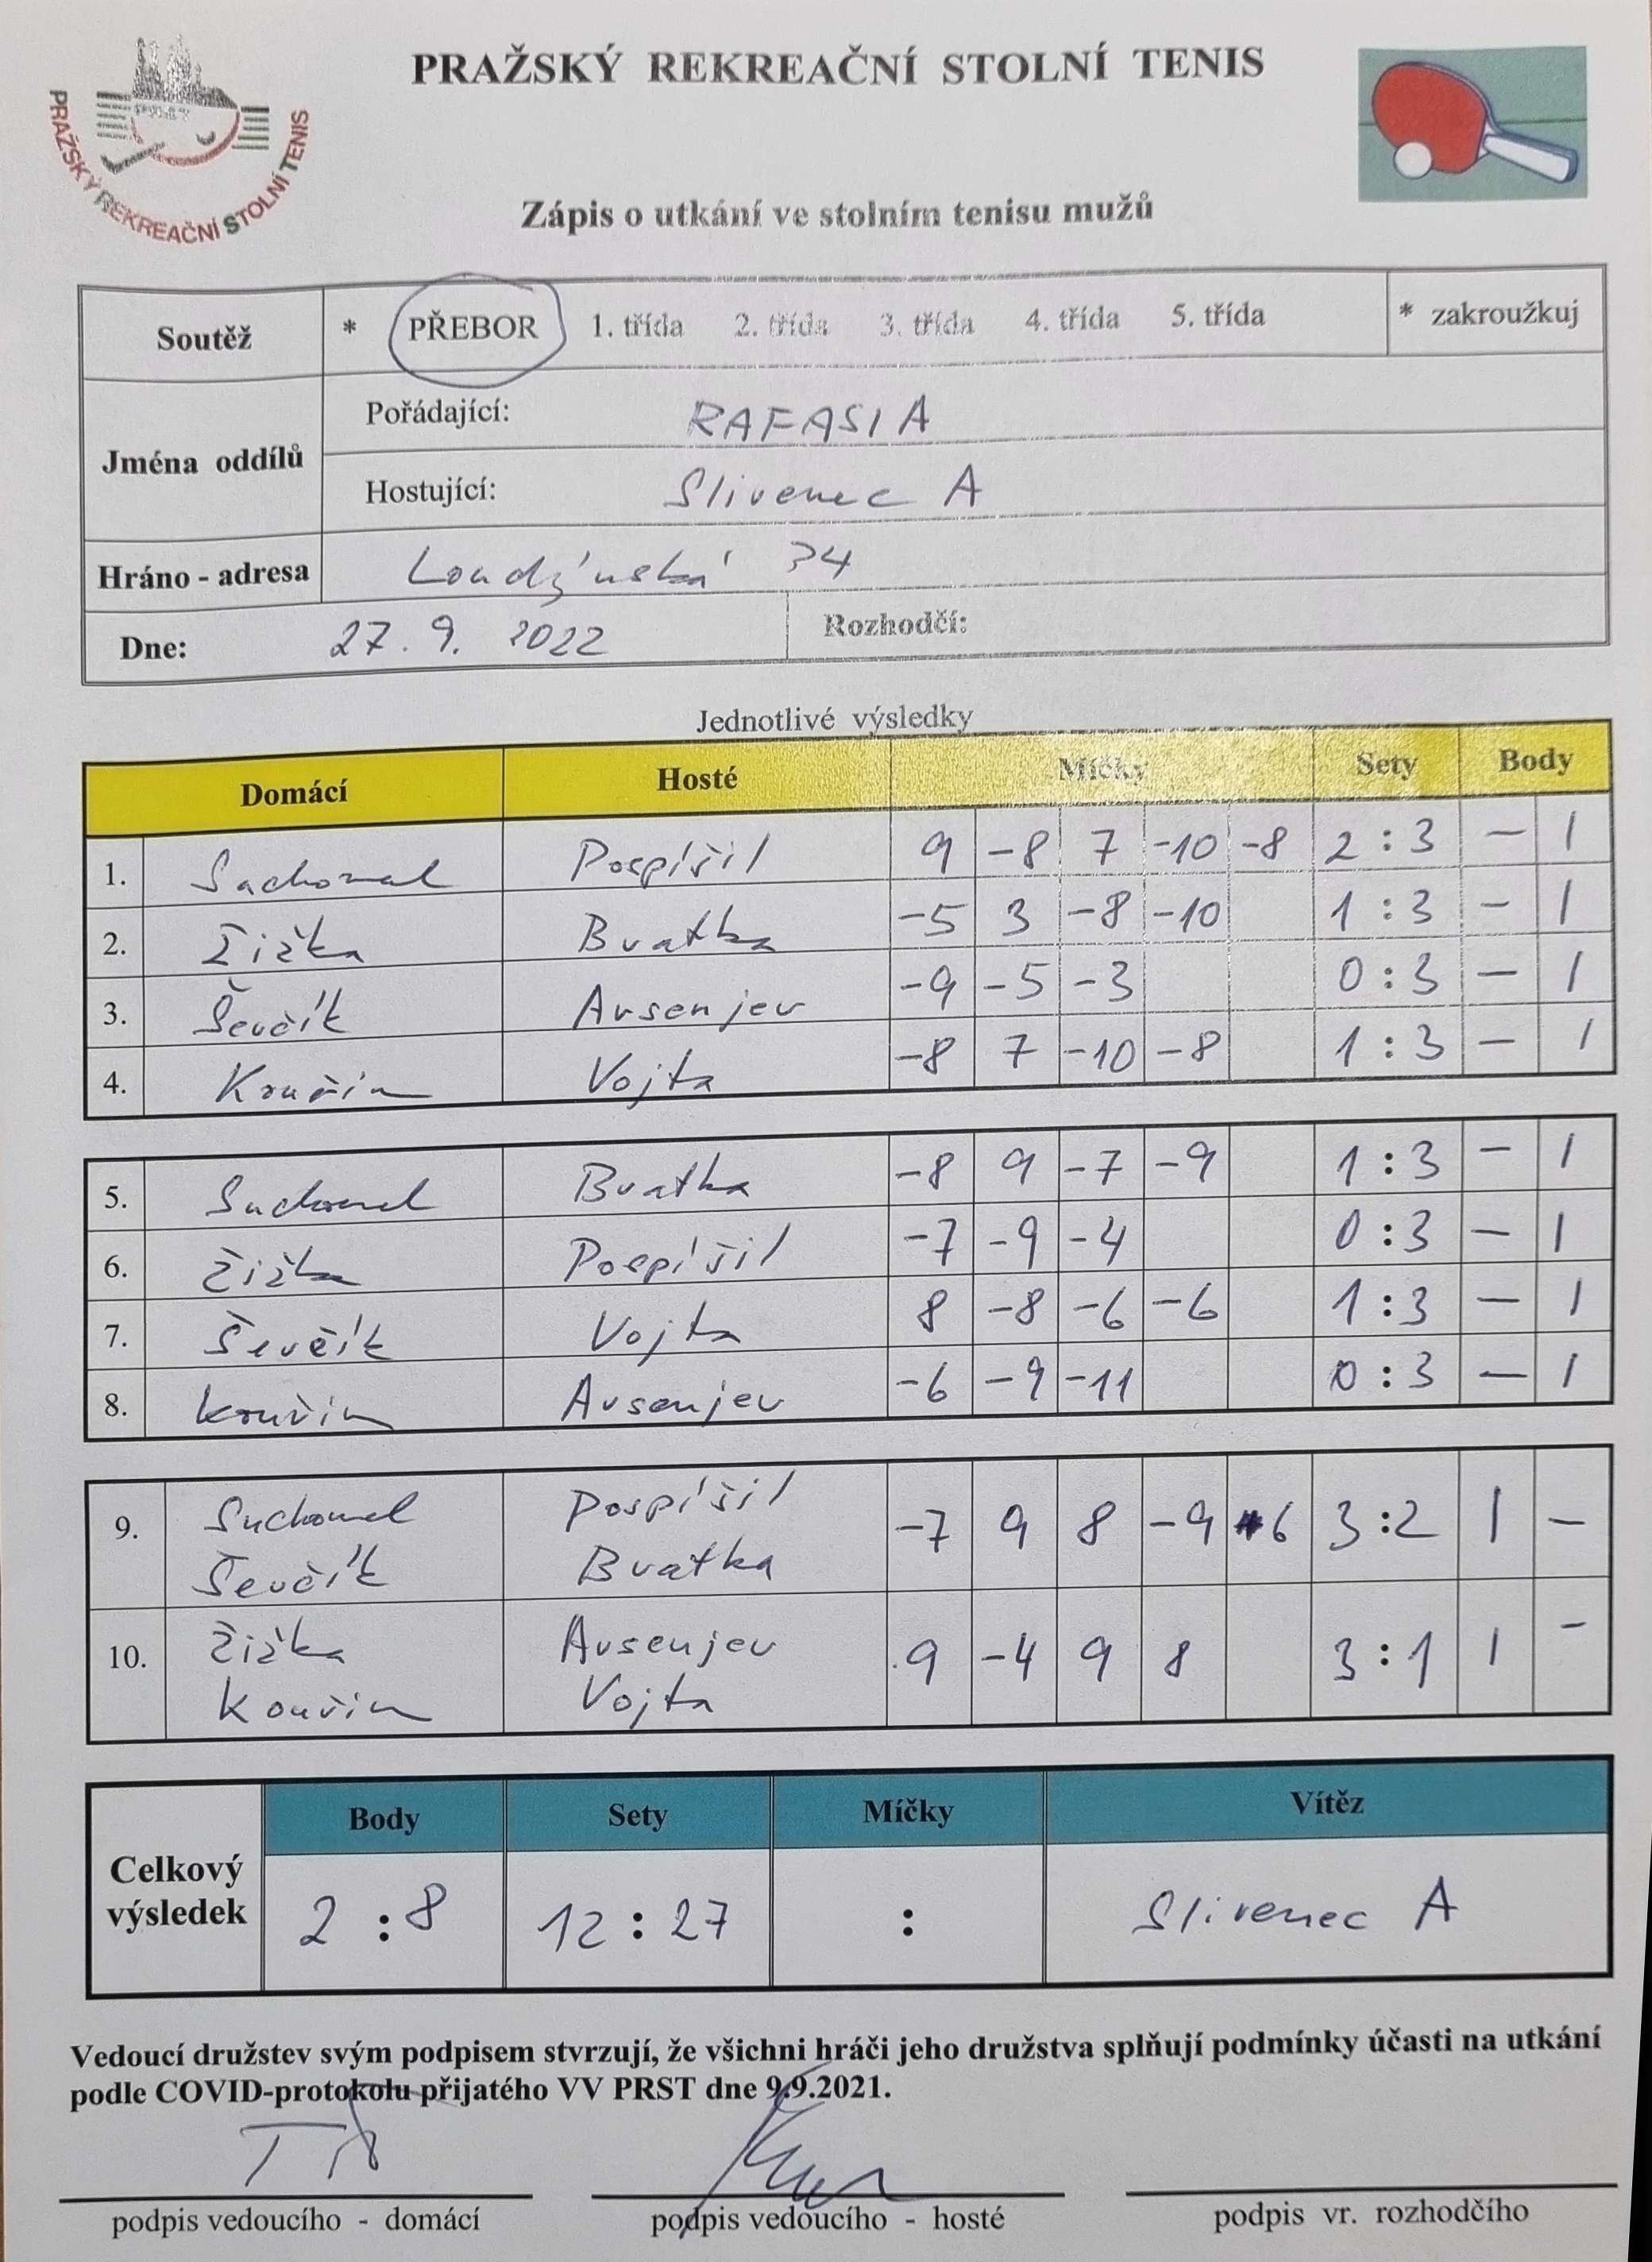 PRAŽSKÝ REKREAČNÍ STOLNÍ TENIS
PRAŽSKÝ REKREAČNÍ STOLNÍ TENIS
Zápis o utkání ve stolním tenisu mužů
Soutěž * PŘEBOR 1. třída 2. třída 3. třída 4. třída 5. třída * zakroužkuj
Jména oddílů
Pořádající: RAFASI A
Hostující: Slivenec A
Hráno - adresa Londýnská 34
Dne: 27. 9. 2022 Rozhodčí:
Jednotlivé výsledky
Domácí Hosté Míčky Sety Body
1. Suchomel Pospíšil 9 -8 7 -10 -8 2 : 3 - 1
2. Žižka Bratka -5 3 -8 -10 1 : 3 - 1
3. Ševčík Arsenjev -9 -5 -3 0 : 3 - 1
4. Kouřim Vojta -8 7 -10 -8 1 : 3 - 1
5. Suchomel Bratka -8 9 -7 -9 1 : 3 - 1
6. Žižka Pospíšil -7 -9 -4 0 : 3 - 1
7. Ševčík Vojta 8 -8 -6 -6 1 : 3 - 1
8. Kouřim Arsenjev -6 -9 -11 0 : 3 - 1
9. Suchomel Pospíšil -7 9 8 -9 6 3 : 2 1 -
Ševčík Bratka
10. Žižka Arsenjev 9 -4 9 8 3 : 1 1 -
Kouřim Vojta
Body Sety Míčky Vítěz
Celkový výsledek 2 : 8 12 : 27 : Slivenec A
Vedoucí družstev svým podpisem stvrzují, že všichni hráči jeho družstva splňují podmínky účasti na utkání
podle COVID-protokolu přijatého VV PRST dne 9.9.2021.
podpis vedoucího - domácí podpis vedoucího - hosté podpis vr. rozhodčího